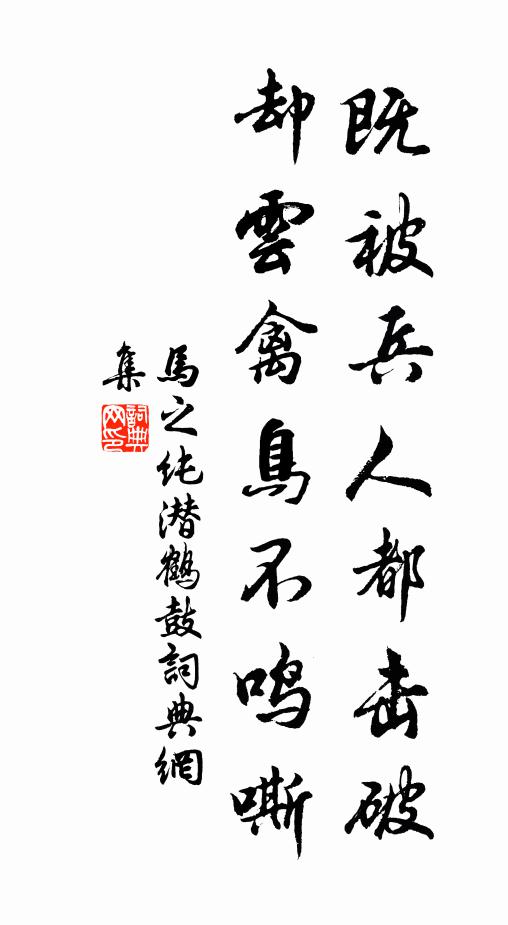 既被兵人都击破
却雲禽鳥不鸣嘶
馬之纯潜鶴鼓詞典網
集
詞典网印